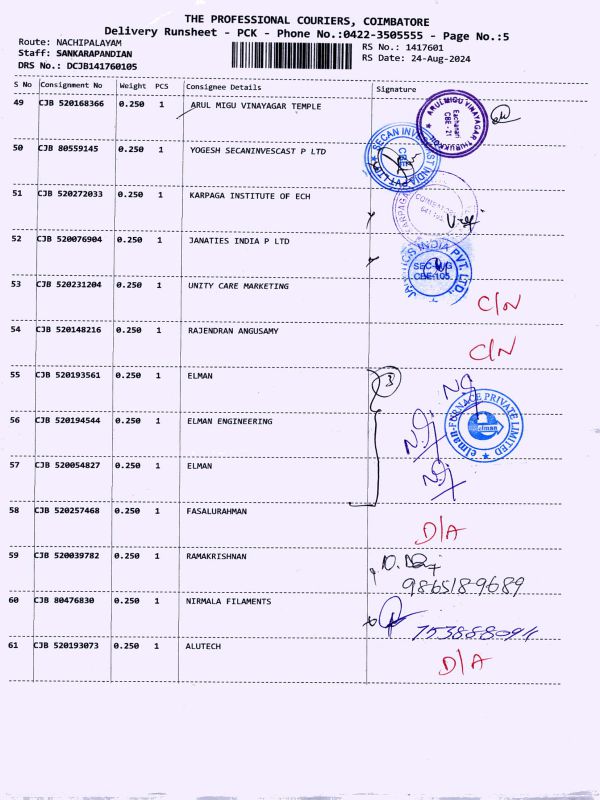 THE PROFESSIONAL COURIERS, COIMBATORE
Delivery Runsheet - PCK - Phone No.:0422-3505555 - Page No.:5
Route: NACHIPALAYAM
RS No.: 1417601
Staff: SANKARAPANDIAN
RS Date: 24-Aug-2024
DRS No.: DCJB141760105
S No Consignment No Weight PCS Consignee Details Signature
49 CJB 520168366 0.250 1 ARUL MIGU VINAYAGAR TEMPLE
50 CJB 80559145 0.250 1 YOGESH SECANINVESCAST P LTD
SECAN INVESCAST INDIA PVT. LTD CBE
51 CJB 520272033 0.250 1 KARPAGA INSTITUTE OF ECH
52 CJB 520076904 0.250 1 JANATIES INDIA P LTD
INDIA PVT. LTD.
CBE-105
53 CJB 520231204 0.250 1 UNITY CARE MARKETING C/N
54 CJB 520148216 0.250 1 RAJENDRAN ANGUSAMY C/N
55 CJB 520193561 0.250 1 ELMAN 3
56 CJB 520194544 0.250 1 ELMAN ENGINEERING
elman-FURNACE PRIVATE LIMITED
elman
57 CJB 520054827 0.250 1 ELMAN
58 CJB 520257468 0.250 1 FASALURAHMAN D/A
59 CJB 520039782 0.250 1 RAMAKRISHNAN
986518-9689
60 CJB 80476830 0.250 1 NIRMALA FILAMENTS
61 CJB 520193073 0.250 1 ALUTECH D/A